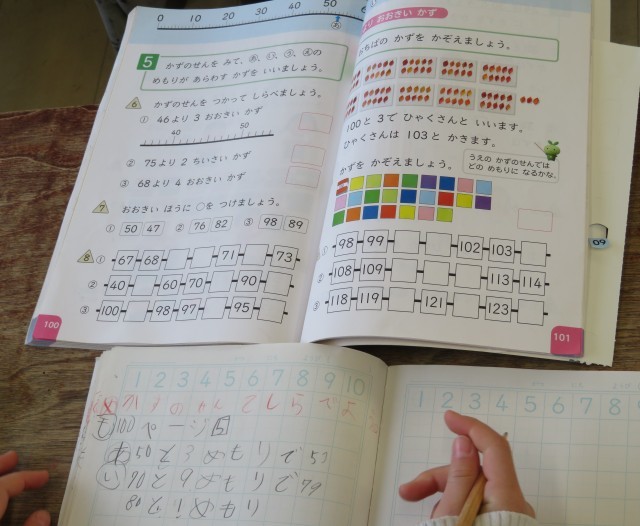 0 10 20 30 40 50
5 かずのせんを みて、あ、い、う、えの
めもりが あらわす かずを いいましょう。
6 かずのせんを つかって しらべましょう。
① 46より 3 おおきい かず
40 50
② 75より 2 ちいさい かず
③ 68より 4 おおきい かず
7 おおきい ほうに ○を つけましょう。
① 50 47 ② 76 82 ③ 98 89
8 ① 67 68 71 73
② 40 60 70 90
③ 100 98 97 95
100
おおきい かず
かずを かぞえましょう。
100と 3で ひゃくさんと いいます。
ひゃくさんは 103と かきます。
かずを かぞえましょう。
うえの かずのせんでは
どの めもりに なるかな。
① 98 99 102 103
② 108 109 113 114
③ 118 119 121 123
101
1 2 3 4 5 6 7 8 9 10
かずのせんでしらべよう
も 100ページ 5
あ 50と3めもりで53
い 70と9めもりで79
80と1めもり
1 2 3 4 5 6 7 8 9